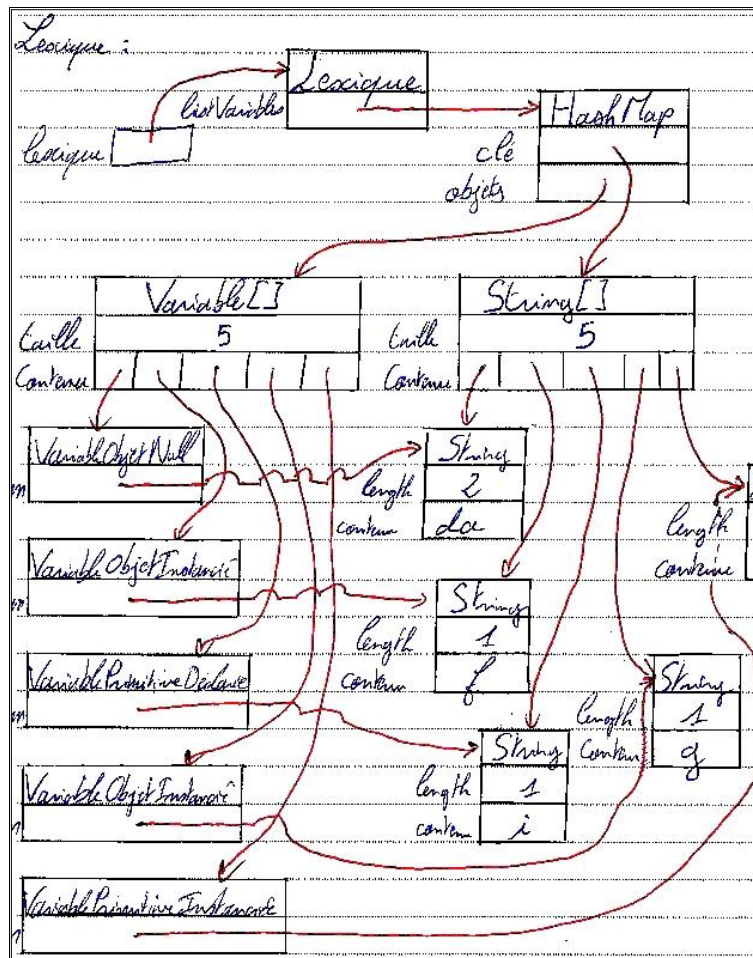 Lexique :
Lexique
listVariables
lexique
HashMap
clé
objets
Variable[]
taille
5
contenu
String[]
taille
5
contenu
VariableObjetNull
String
length
2
contenu
da
length
contenu
VariableObjetInstancié
String
length
1
contenu
f
VariablePrimitiveDeclare
String
length
1
contenu
g
String
length
1
contenu
i
VariableObjetInstancié
VariablePrimitiveInstanciée